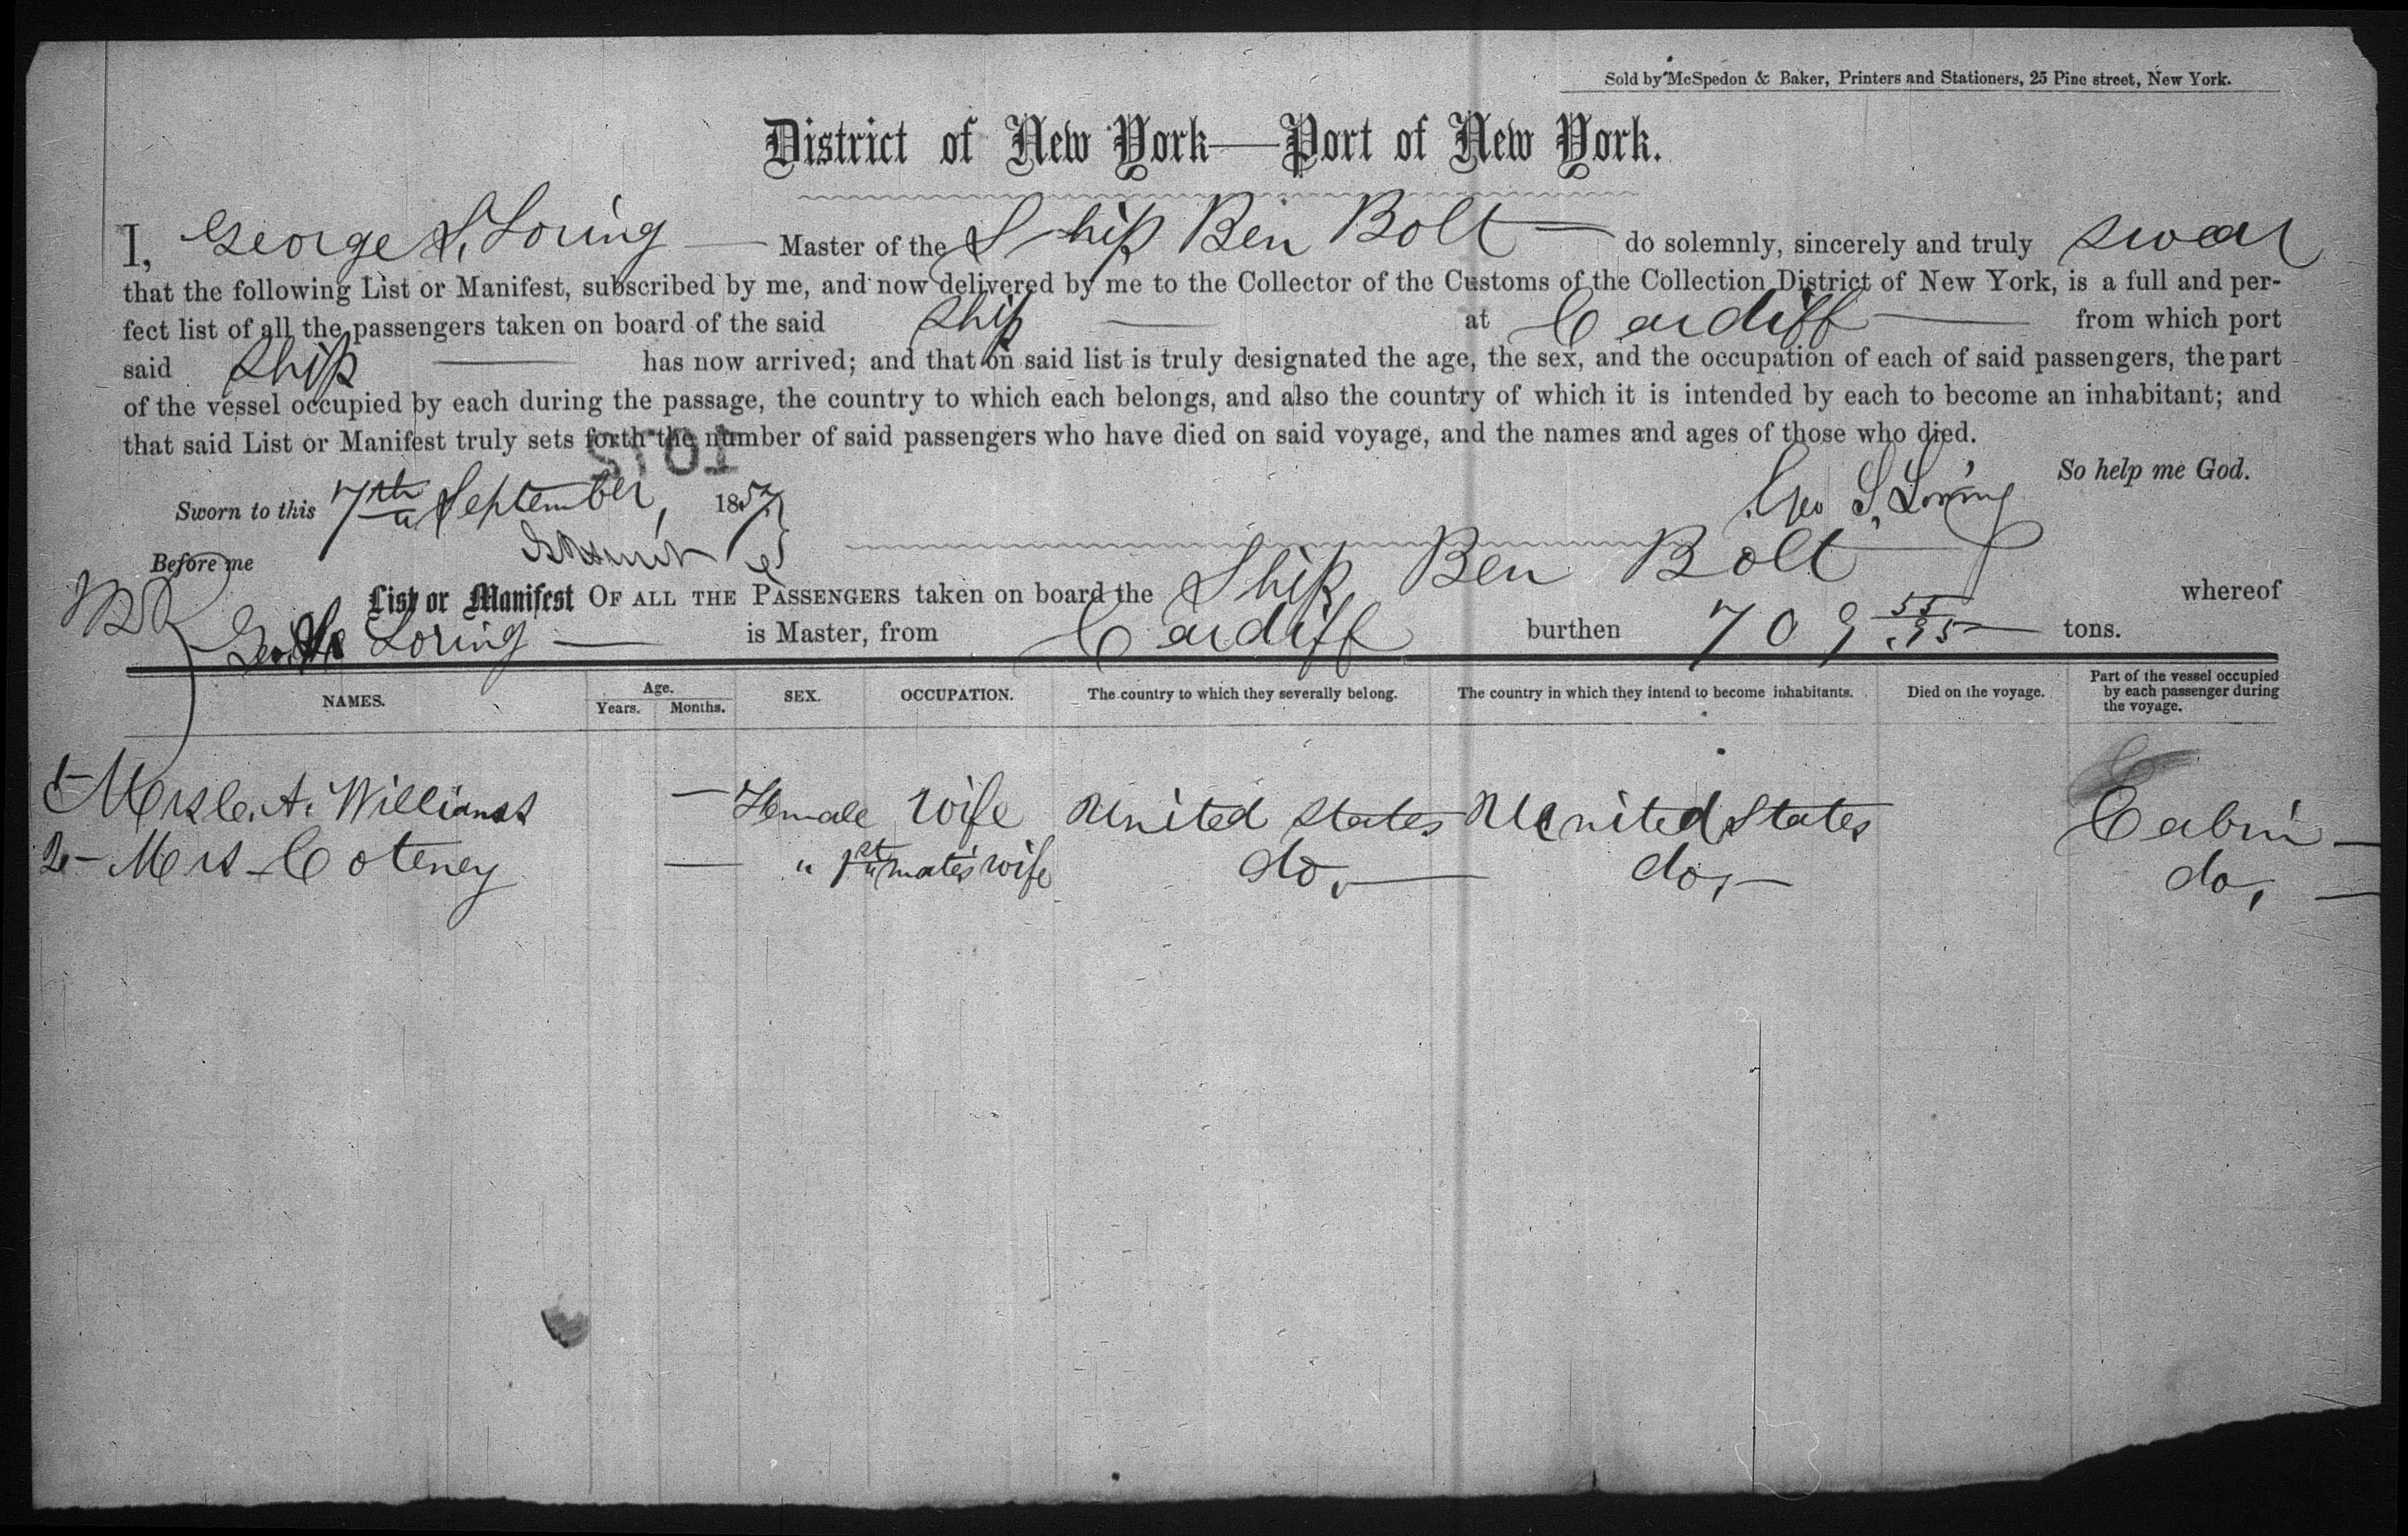 Sold by McSpedon & Baker, Printers and Stationers, 25 Pine street, New York.
District of New York—Port of New York.
I, George S. Loring — Master of the Ship Ben Bolt — do solemnly, sincerely and truly swear
that the following List or Manifest, subscribed by me, and now delivered by me to the Collector of the Customs of the Collection District of New York, is a full and per-
fect list of all the passengers taken on board of the said ship — at Cardiff — from which port
said ship — has now arrived; and that on said list is truly designated the age, the sex, and the occupation of each of said passengers, the part
of the vessel occupied by each during the passage, the country to which each belongs, and also the country of which it is intended by each to become an inhabitant; and
that said List or Manifest truly sets forth the number of said passengers who have died on said voyage, and the names and ages of those who died.
So help me God.
Sworn to this 7th September, 1857
Geo S. Loring
Before me
List or Manifest OF ALL THE PASSENGERS taken on board the Ship Ben Bolt whereof
Geo. Loring — is Master, from Cardiff burthen 709 55/95 — tons.
NAMES. Age. Years. Months. SEX. OCCUPATION. The country to which they severally belong. The country in which they intend to become inhabitants. Died on the voyage. Part of the vessel occupied by each passenger during the voyage.
1- Mrs C. A. Williams — Female Wife United States United States Cabin —
2- Mrs - Coteney — " 1st mate's wife do, — do, — do, —